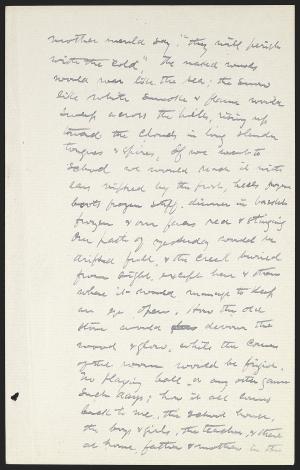 mother would say: "they will perish
with the cold," the naked woods
would roar like the sea; the snow
like white smoke & flame would
sweep across the hills, rising up
toward the clouds in long slender
tongues & spires. If we went to
school we would reach it with
ears nipped by the frost, heels frozen
boots frozen stiff, dinner in basket
frozen & our faces red & stinging
Our path of yesterday would be
drifted full & the creek buried
from sight, except here & there
where it would manage to keep
an eye open. How the old
stove would devour the
wood & glow, while the corners
of the room would be frigid.
No playing ball or any other game
such days; how it all comes
back to me, the school house,
the boys & girls, the teacher, & there
at home, father & mother in the